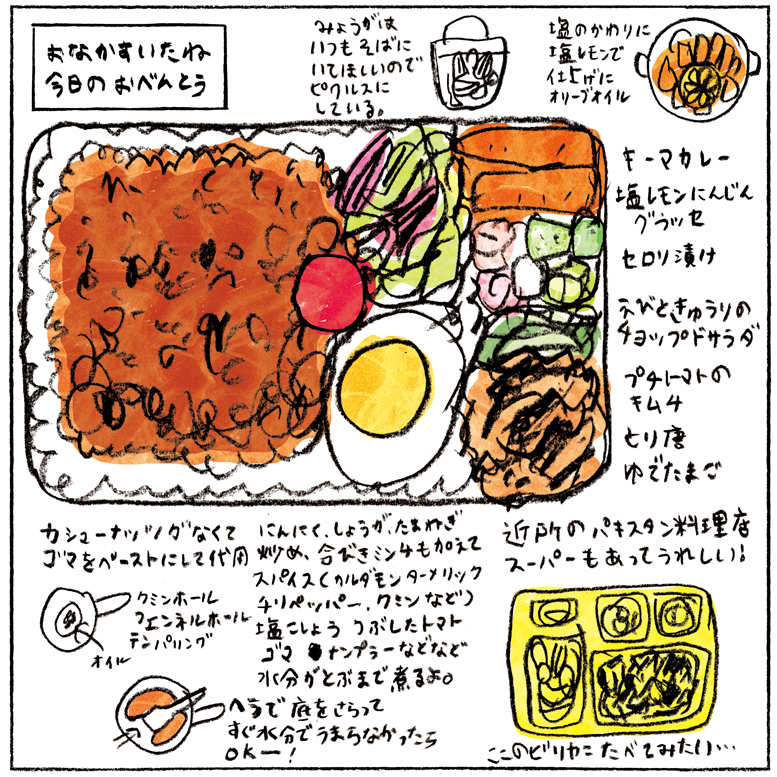 おなかすいたね
今日のおべんとう
みょうがは
いつもそばに
いてほしいので
ピクルスに
している。
塩のかわりに
塩レモンで
仕上げに
オリーブオイル
キーマカレー
塩レモンにんじん
グラッセ
セロリ漬け
えびときゅうりの
チョップドサラダ
プチトマトの
キムチ
とり唐
ゆでたまご
カシューナッツがなくて
ゴマをペーストにして代用
クミンホール
フェンネルホール
テンパリング
オイル
にんにく、しょうが、たまねぎ
炒め、合びきミンチも加えて
スパイス(カルダモン ターメリック
チリペッパー、クミンなど)
塩こしょう つぶしたトマト
ゴマ ナンプラーなどなど
水分がとぶまで煮るよ。
ヘラで底をさらって
すぐ水分でうまらなかったら
OKー!
近所のパキスタン料理店
スーパーもあってうれしい!
ここのビリヤニたべてみたい…